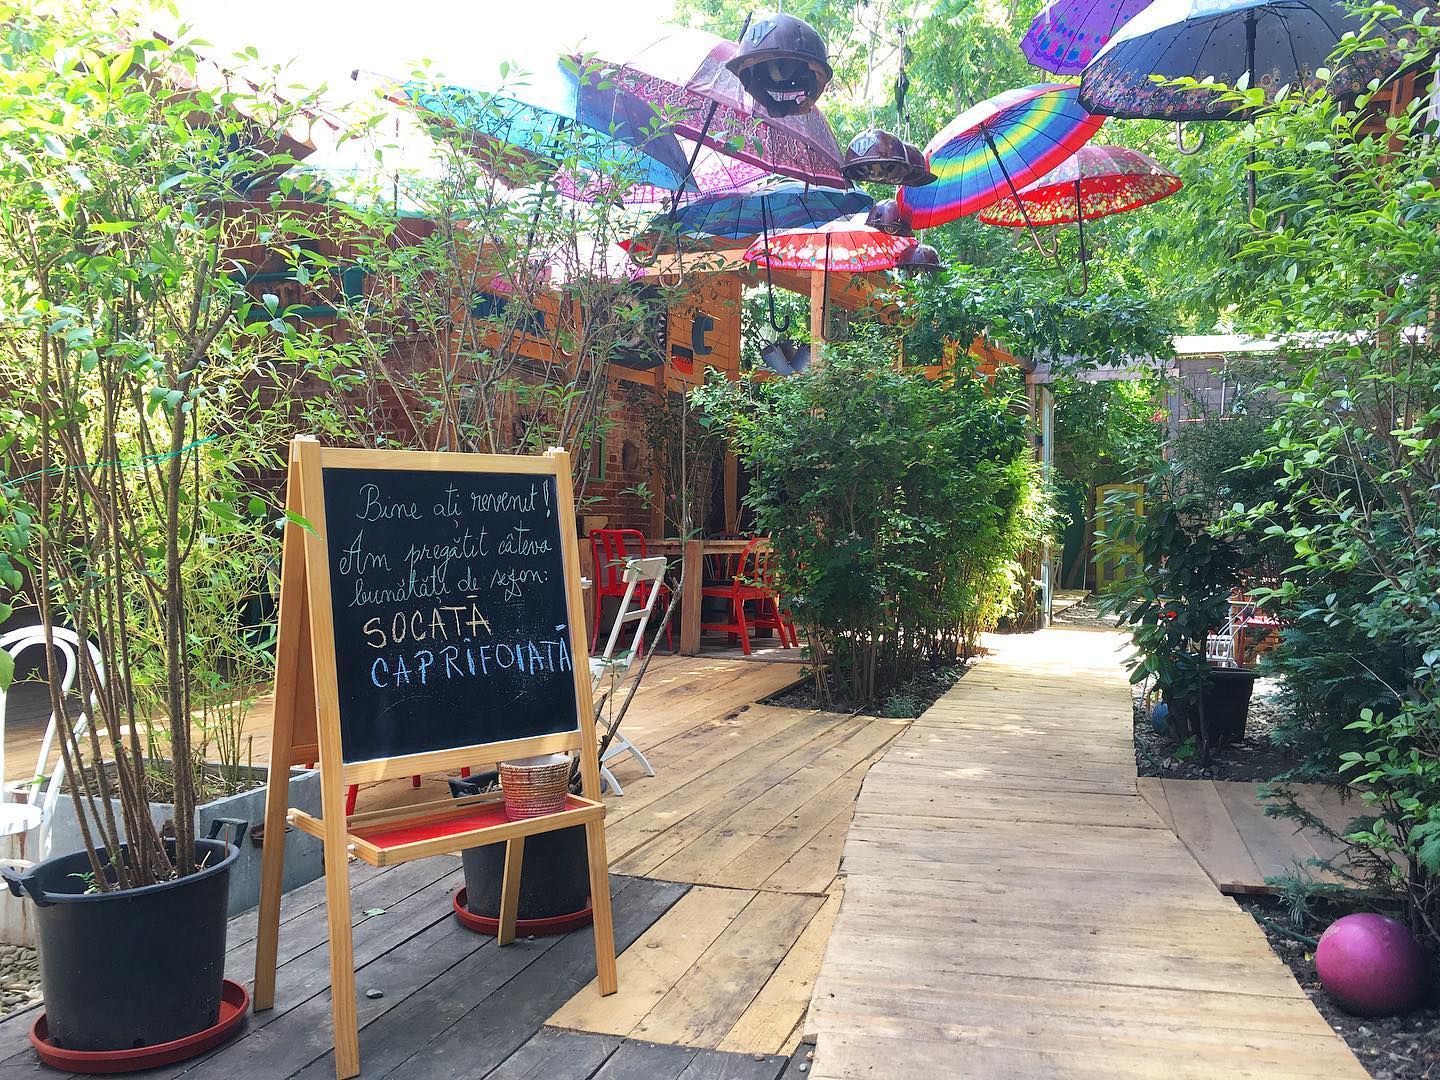 Bine ați revenit!
Am pregătit câteva
bunătăți de sezon:
SOCATĂ
CAPRIFOIATĂ